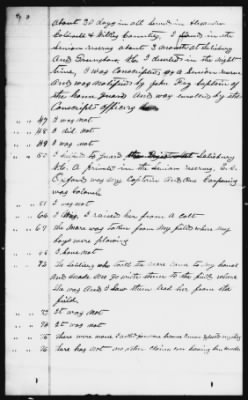 about 30 days in all served in Alexander
Caldwell & Wilkes Counties, I served in the
Senior reserve about 3 months at Salisbury
and Greensboro N.C. I deserted in the night
time, I was Conscripted as a Senior reserve
and was notified by John Fox Captain of
the home guard and was enrolled by the
Conscript officers
" " 47 I was not
" " 48 I did not
" " 49 I was not
" " 50 I helped to guard Salisbury
N.C. A private in the Senior reserve,
was my Captain and
was Colonel
" " 51 I was not
" " 66 I raised her from a Colt
" " 67 The mare was taken from my field where my
boys were plowing
" " 68 I have not
" " 72 The Soldiers who took the mare came to my house
and made one go with them to the field where
she was and I saw them lead her from the
field.
" " 73 It was not
" " 74 It was not
" " 75 There were none
" " 76 There has not